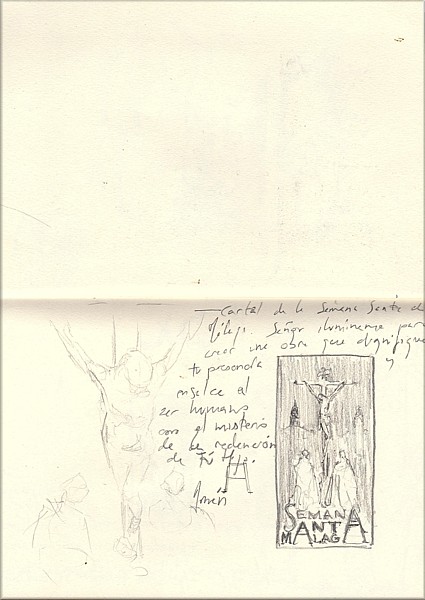 — Cartel de la Semana Santa de
Málaga. Señor ilumíname para
crear una obra que dignifique
tu presencia y
ensalce al
ser humano
con el misterio
de la redención
de Tú Hijo.
Amén
SEMANA
SANTA
MALAGA